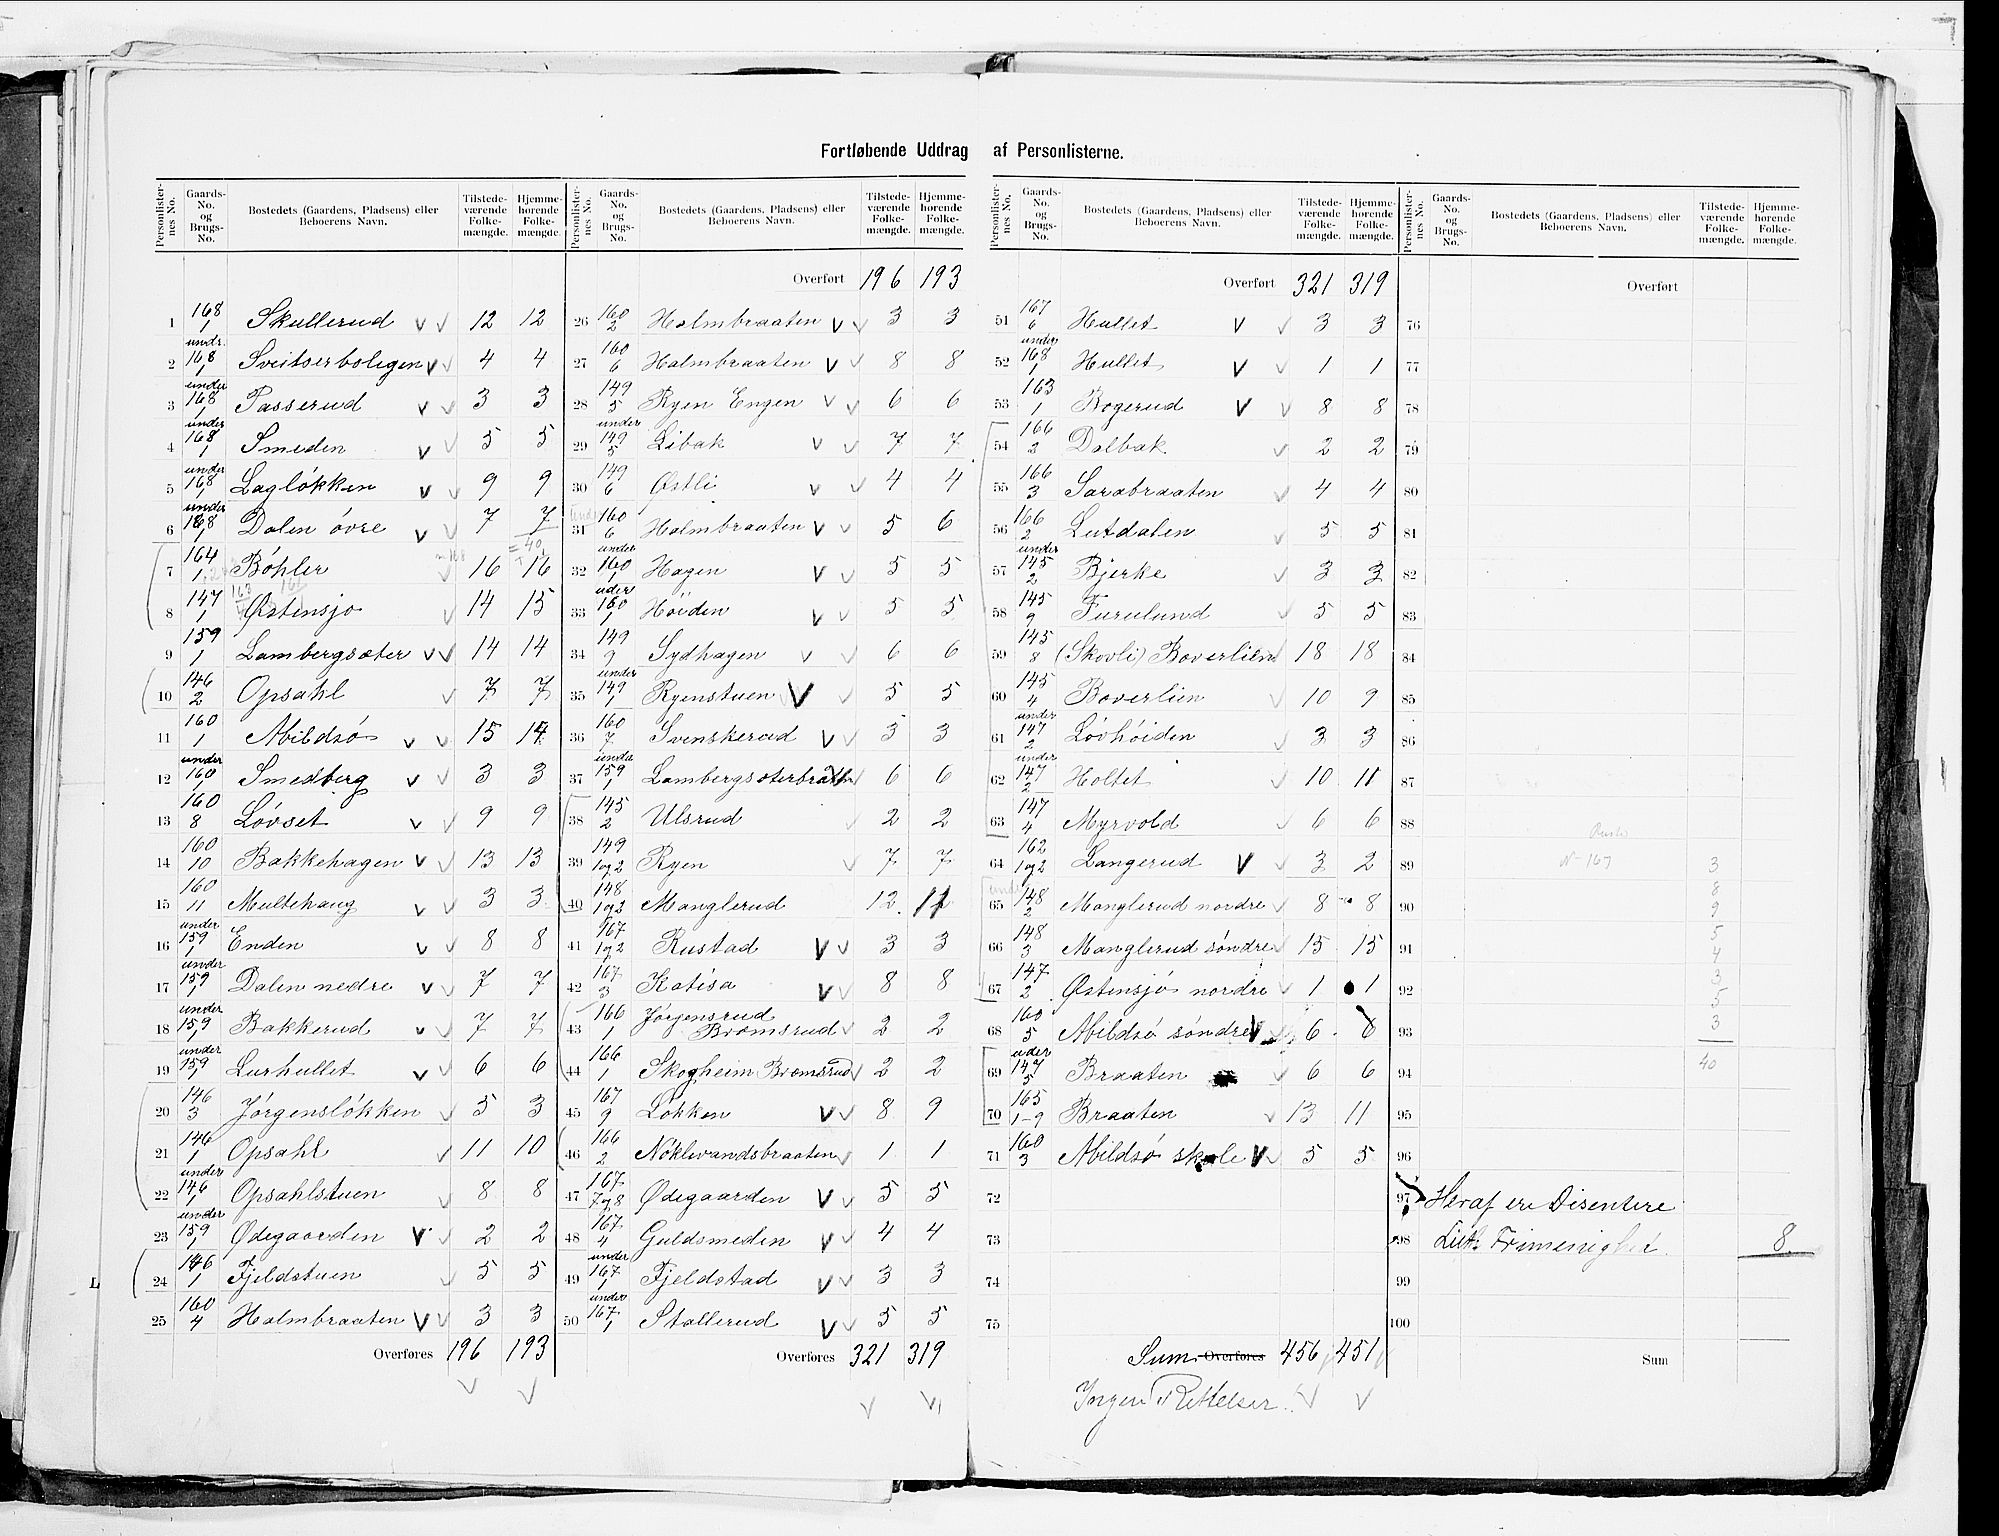 Fortløbende Uddrag af Personlisterne.
Personlisternes No. Gaards-No. og Brugs-No. Bostedets (Gaardens, Pladsens) eller Beboerens Navn. Tilstedeværende Folkemængde. Hjemmehørende Folkemængde.
1 168/1 Skullerud 12 12
2 undr. 168/1 Sveitserboligen 4 4
3 under 168/1 Passerud 3 3
4 under 168/1 Smeden 5 5
5 under 168/1 Lagløkken 9 9
6 under 168/1 Dalen övre 7 7
= 40
7 164/1 Bøhler 16 16
8 147/1 Østensjø 14 15
9 159/1 Lambergsæter 14 14
10 146/2 Opsahl 7 7
11 160/1 Abildsø 15 14
12 under 160/1 Smedberg 3 3
13 160/8 Løvset 9 9
14 160/10 Bakkehagen 13 13
15 160/11 Multehaug 3 3
16 under 159/1 Enden 8 8
17 under 159/1 Dalen nedre 7 7
18 under 159/1 Bakkerud 7 7
19 under 159/1 Lurhullet 6 6
20 146/3 Jørgensløkken 5 3
21 146/1 Opsahl 11 10
22 under 146/1 Opsahlstuen 8 8
23 under 159/1 Ødegaarden 2 2
24 146/1 Fjeldstuen 5 5
25 160/4 Holmbraaten 3 3
Overføres 196 193
Personlisternes No. Gaards-No. og Brugs-No. Bostedets (Gaardens, Pladsens) eller Beboerens Navn. Tilstedeværende Folkemængde. Hjemmehørende Folkemængde.
Overført 196 193
26 160/2 Holmbraaten 3 3
27 160/6 Holmbraaten 8 8
28 149/5 Ryen Engen 6 6
29 under 149/5 Libak 7 7
30 149/6 Østli 4 4
31 under 160/6 Holmbraaten 5 6
32 under 160/1 Hagen 5 5
33 uder 160/1 Høiden 5 5
34 149/9 Sydhagen 6 6
35 under 149/1 Ryenstuen 5 5
36 160/7 Svenskerud 3 3
37 under 159/1 Lambergsæterbraaten 6 6
38 145/2 Ulsrud 2 2
39 149/1og2 Ryen 7 7
40 148/1og2 Manglerud 12 11
41 167/1og2 Rustad 3 3
42 167/3 Katisa 8 8
43 166/1 Jørgensrud Bromsrud 2 2
44 166/1 Skogheim Bromsrud 2 2
45 167/9 Løkken 8 9
46 166/2 Nøklevandsbraaten 1 1
47 167/7og8 Ødegaarden 5 5
48 167/4 Guldsmeden 4 4
49 under 167/1 Fjeldstad 3 3
50 under 167/1 Stallerud 5 5
Overføres 321 319
Personlisternes No. Gaards-No. og Brugs-No. Bostedets (Gaardens, Pladsens) eller Beboerens Navn. Tilstedeværende Folkemængde. Hjemmehørende Folkemængde.
Overført 321 319
51 167/6 Hullet 3 3
52 under 168/1 Hullet 1 1
53 163/1 Bogerud 8 8
54 166/3 Dalbak 2 2
55 166/3 Sarabraaten 4 4
56 166/2 Lutdalen 5 5
57 under 145/2 Bjerke 3 3
58 145/9 Furulund 5 5
59 145/8 (Skovli) Boverlien 18 18
60 145/4 Boverlien 10 9
61 under 147/2 Løvhøiden 3 3
62 under 147/2 Holtet 10 11
63 147/4 Myrvold 6 6
64 162/1og2 Langerud 3 2
65 under 148/2 Manglerud nordre 8 8
66 148/3 Manglerud søndre 15 15
67 147/2 Østensjø nordre 1 1
68 160/5 Abildsø søndre 6 6
69 under 147/5 Braaten 6 6
70 165/1-9 Braaten 13 11
71 160/3 Abildsø skole 5 5
72
73
74
75
Sum Overføres 456 451
Ingen Rettelser.
Personlisternes No. Gaards-No. og Brugs-No. Bostedets (Gaardens, Pladsens) eller Beboerens Navn. Tilstedeværende Folkemængde. Hjemmehørende Folkemængde.
Overført
76
77
78
79
80
81
82
83
84
85
86
87
88
89 N-167 3
8
90 9
91 5
4
92 3
5
93 3
94 40
95
96
97 Heraf ere Disentere
98 Luth. Frimenighed. 8
99
100
Sum